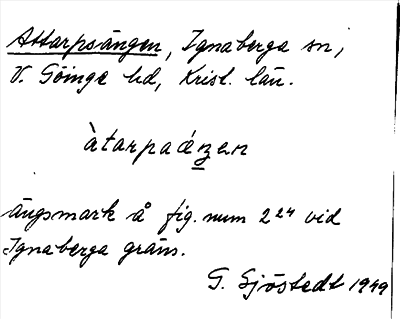 Attarpsängen, Ignaberga sn,
V. Göinge hd, Krist. län.
àtarpaǽŋen
ängsmark å fig. num 2 24 vid
Ignaberga gräns.
G. Sjöstedt 1949